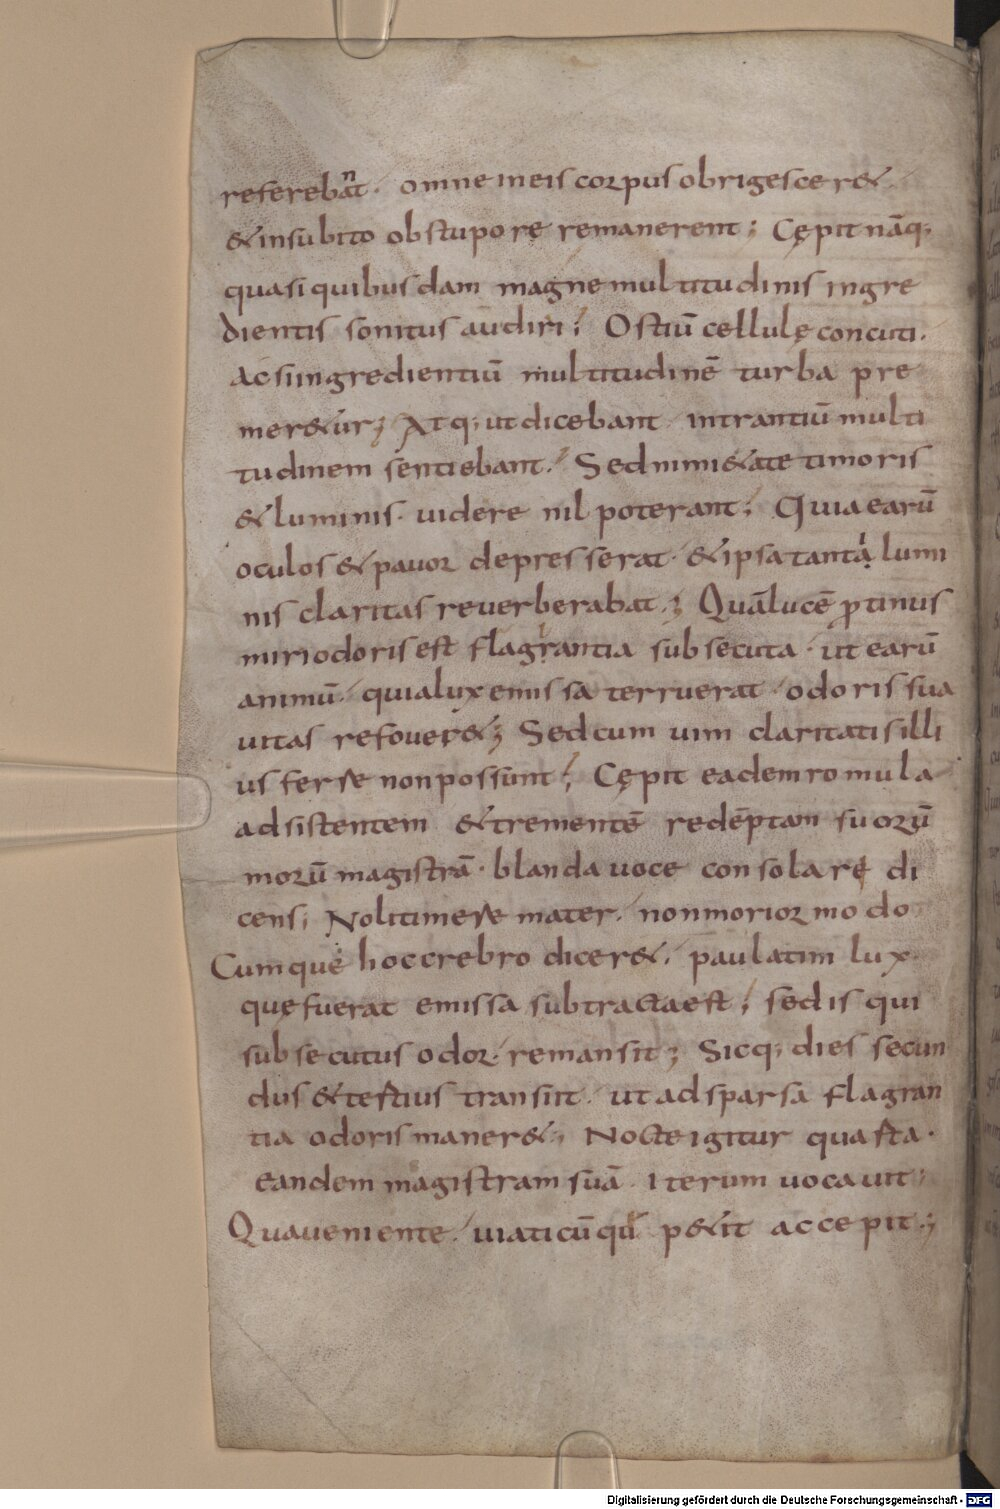 referebaṅt. omne in eis corpus obrigescer&.
& in subito obstupore remanerent; Cępit nāq;
quasi quibusdam magne multitudinis ingre
dientis sonitus audiri; Ostiū cellulę concuti.
ac si ingredientiū multitudinē turba pre
mer&ur; Atq; ut dicebant intrantiū multi
tudinem sentiebant. Sed nimi&ate timoris
& luminis. uidere nil poterant; Quia earū
oculos & pauor depresserat. & ipsa tanta lumi
nis claritas reuerberabat; Quā lucē ꝓtinus
miri odoris est flagrantia subsecuta. ut earū
animū. quia lux emissa terruerat. odoris sua
uitas refouer&; Sed cum uim claritatis illi
us ferre non possent; Cępit eadem romula
adsistentem & trementē redēptam suorū
morū magistrā. blanda uoce consolare di
cens; Noli timere mater. non morior modo
Cumque hoc crebro dicer&. paulatim lux
quę fuerat emissa subtracta est; sed is qui
subsecutus odor. remansit; Sicq; dies secun
dus & tertius transiit. ut adsparsa flagran
tia odoris maner&; Nocte igitur quarta.
eandem magistram suā. iterum uocauit;
Qua ueniente. uiaticū qu p&iit accepit;
Digitalisierung gefördert durch die Deutsche Forschungsgemeinschaft - DFG